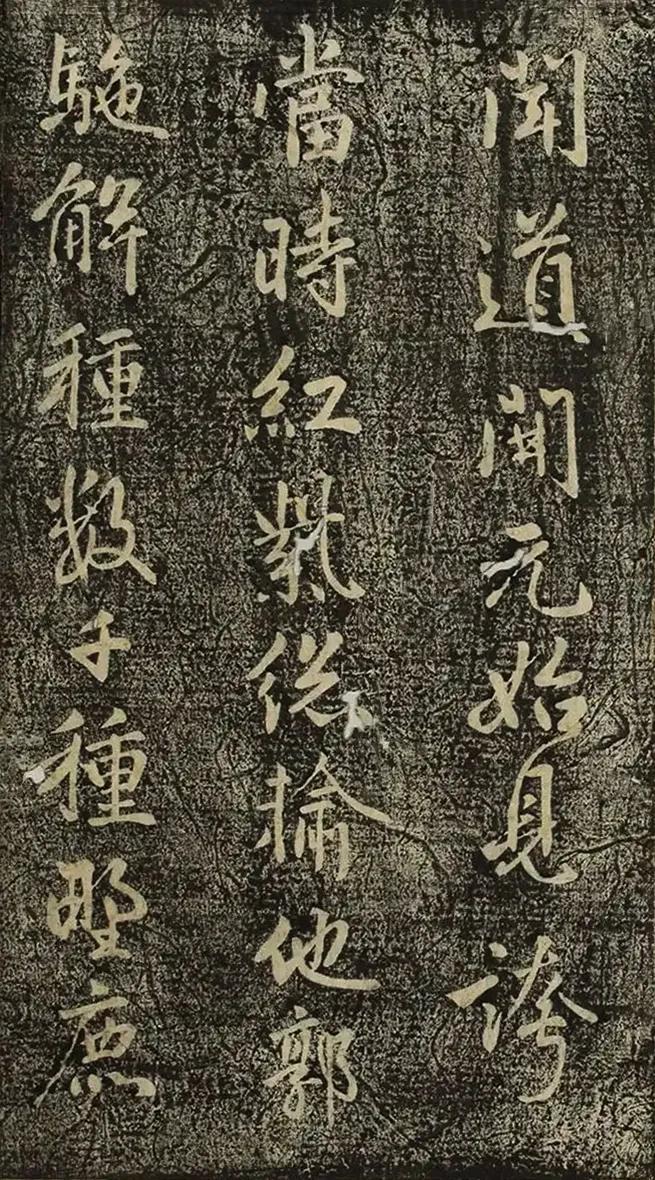 聞道開元始見誇
當時紅紫掄他郭
駞解種數千種野庶